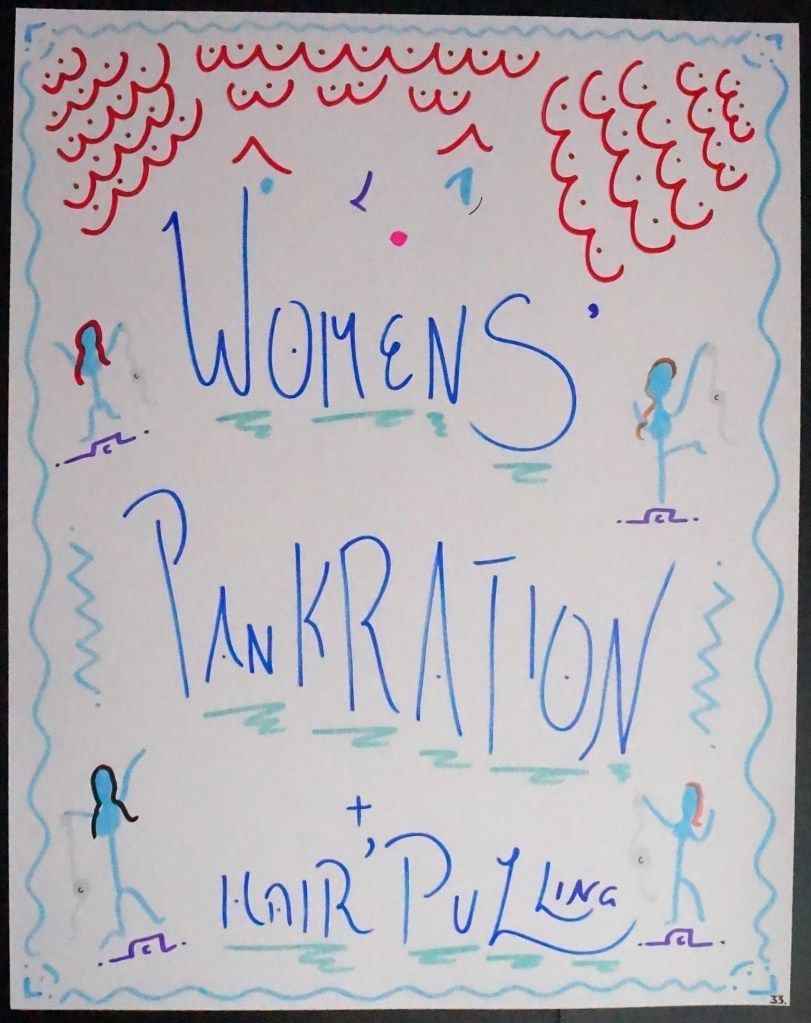 WOMENS'
PANKRATION
+
HAIR' PULLING
33.